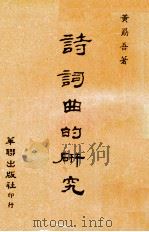 黃勗吾著
詩詞曲的研究
華聯出版社印行